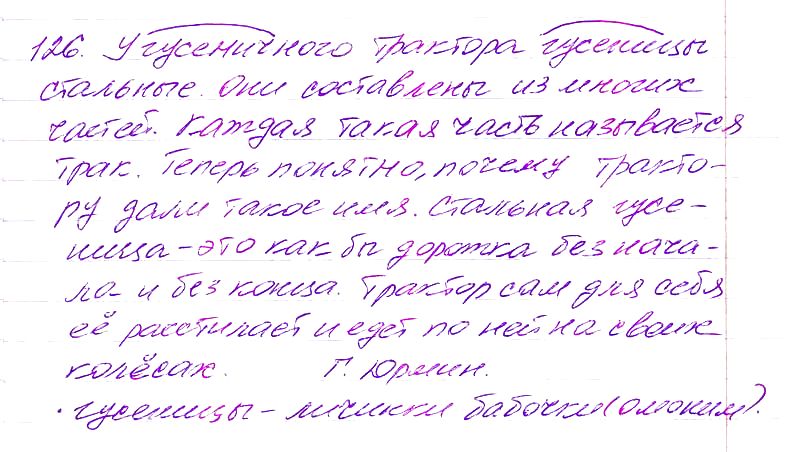 126. У гусеничного трактора гусеницы
стальные. Они составлены из многих
частей. Каждая такая часть называется
трак. Теперь понятно, почему тракто-
ру дали такое имя. Стальная гусе-
ница – это как бы дорожка без нача-
ла и без конца. Трактор сам для себя
её расстилает и едет по ней на своих
колёсах. Г. Юрмин.
· Гусеницы – личинки бабочки (омоним).